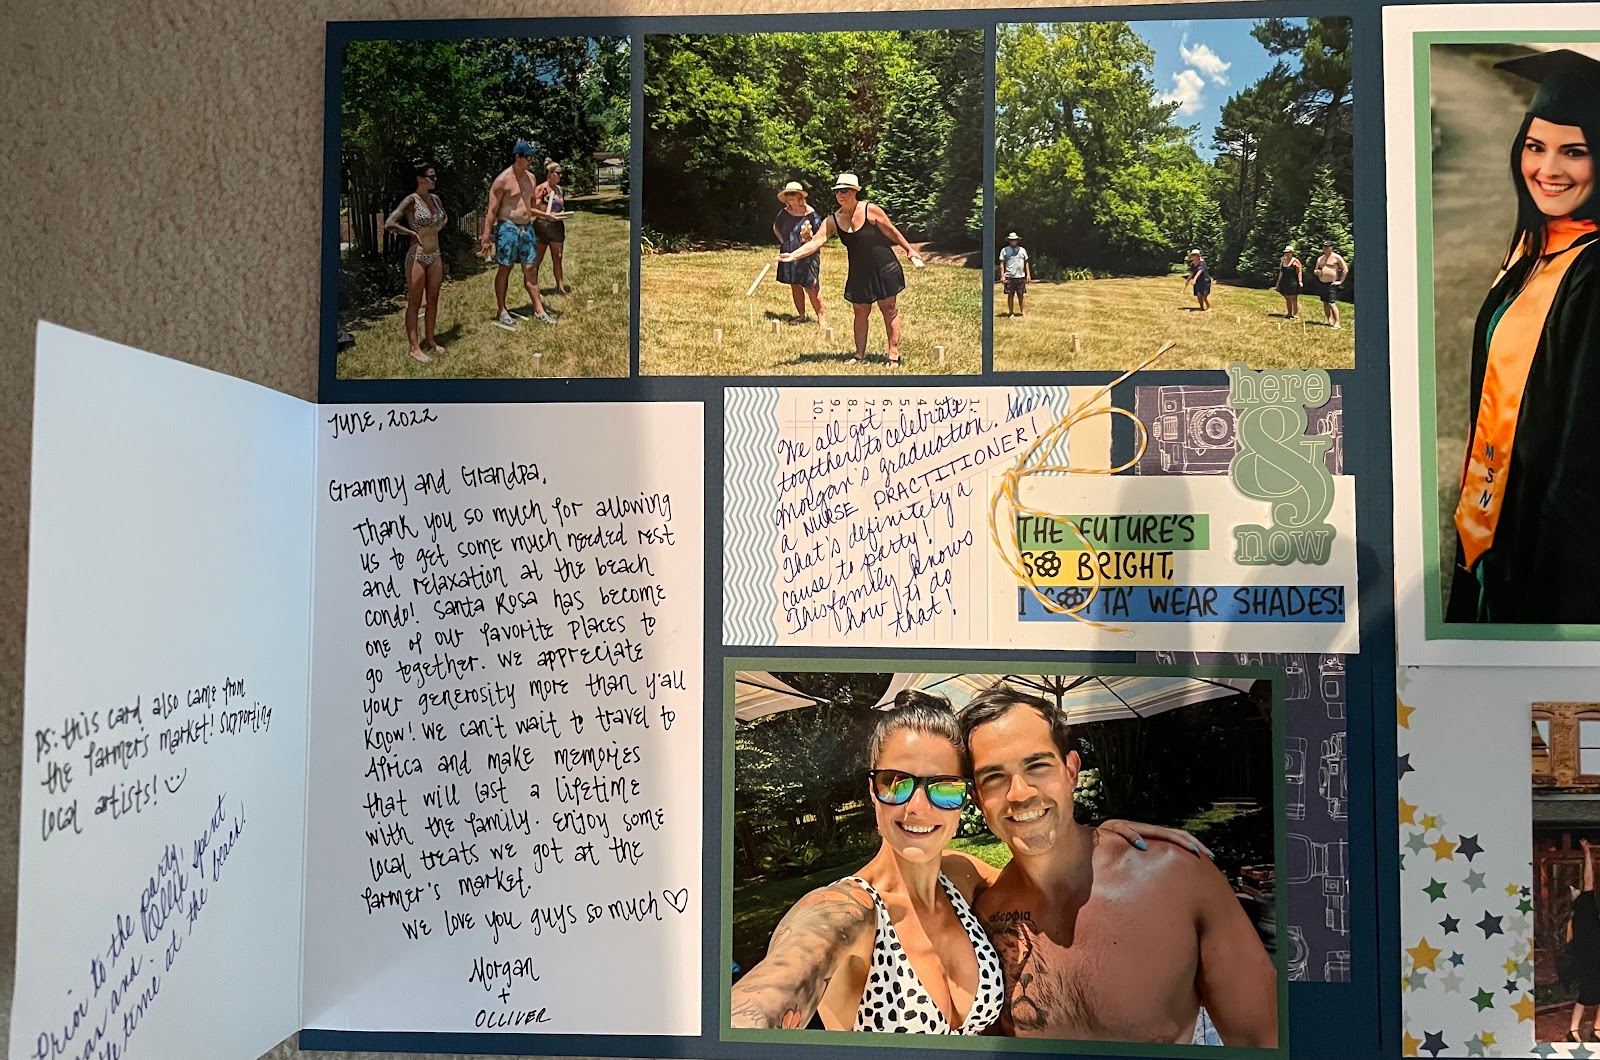 JUNE, 2022
Grammy and Grandpa,
Thank you so much for allowing
us to get some much needed rest
and relaxation at the beach
condo! Santa Rosa has become
one of our favorite places to
go together. We appreciate
your generosity more than y'all
know! We can't wait to travel to
Africa and make memories
that will last a lifetime
with the family. Enjoy some
local treats we got at the
farmer's market.
We love you guys so much
Morgan
+
OLLIVER
PS: this card also came from
the farmer's market! Supporting
local artists!
Prior to the party,
and Ollie spent
time at the beach.
10. 9. 8. 7. 6. 5. 4. 3. 2. 1.
We all got
together to celebrate
Morgan's graduation. She's
a NURSE PRACTITIONER!
That's definitely a
cause to party!
This family knows
how to do
that!
here
&
now
THE FUTURE'S
SO BRIGHT,
I GOTTA' WEAR SHADES!
MSN
αδερφια